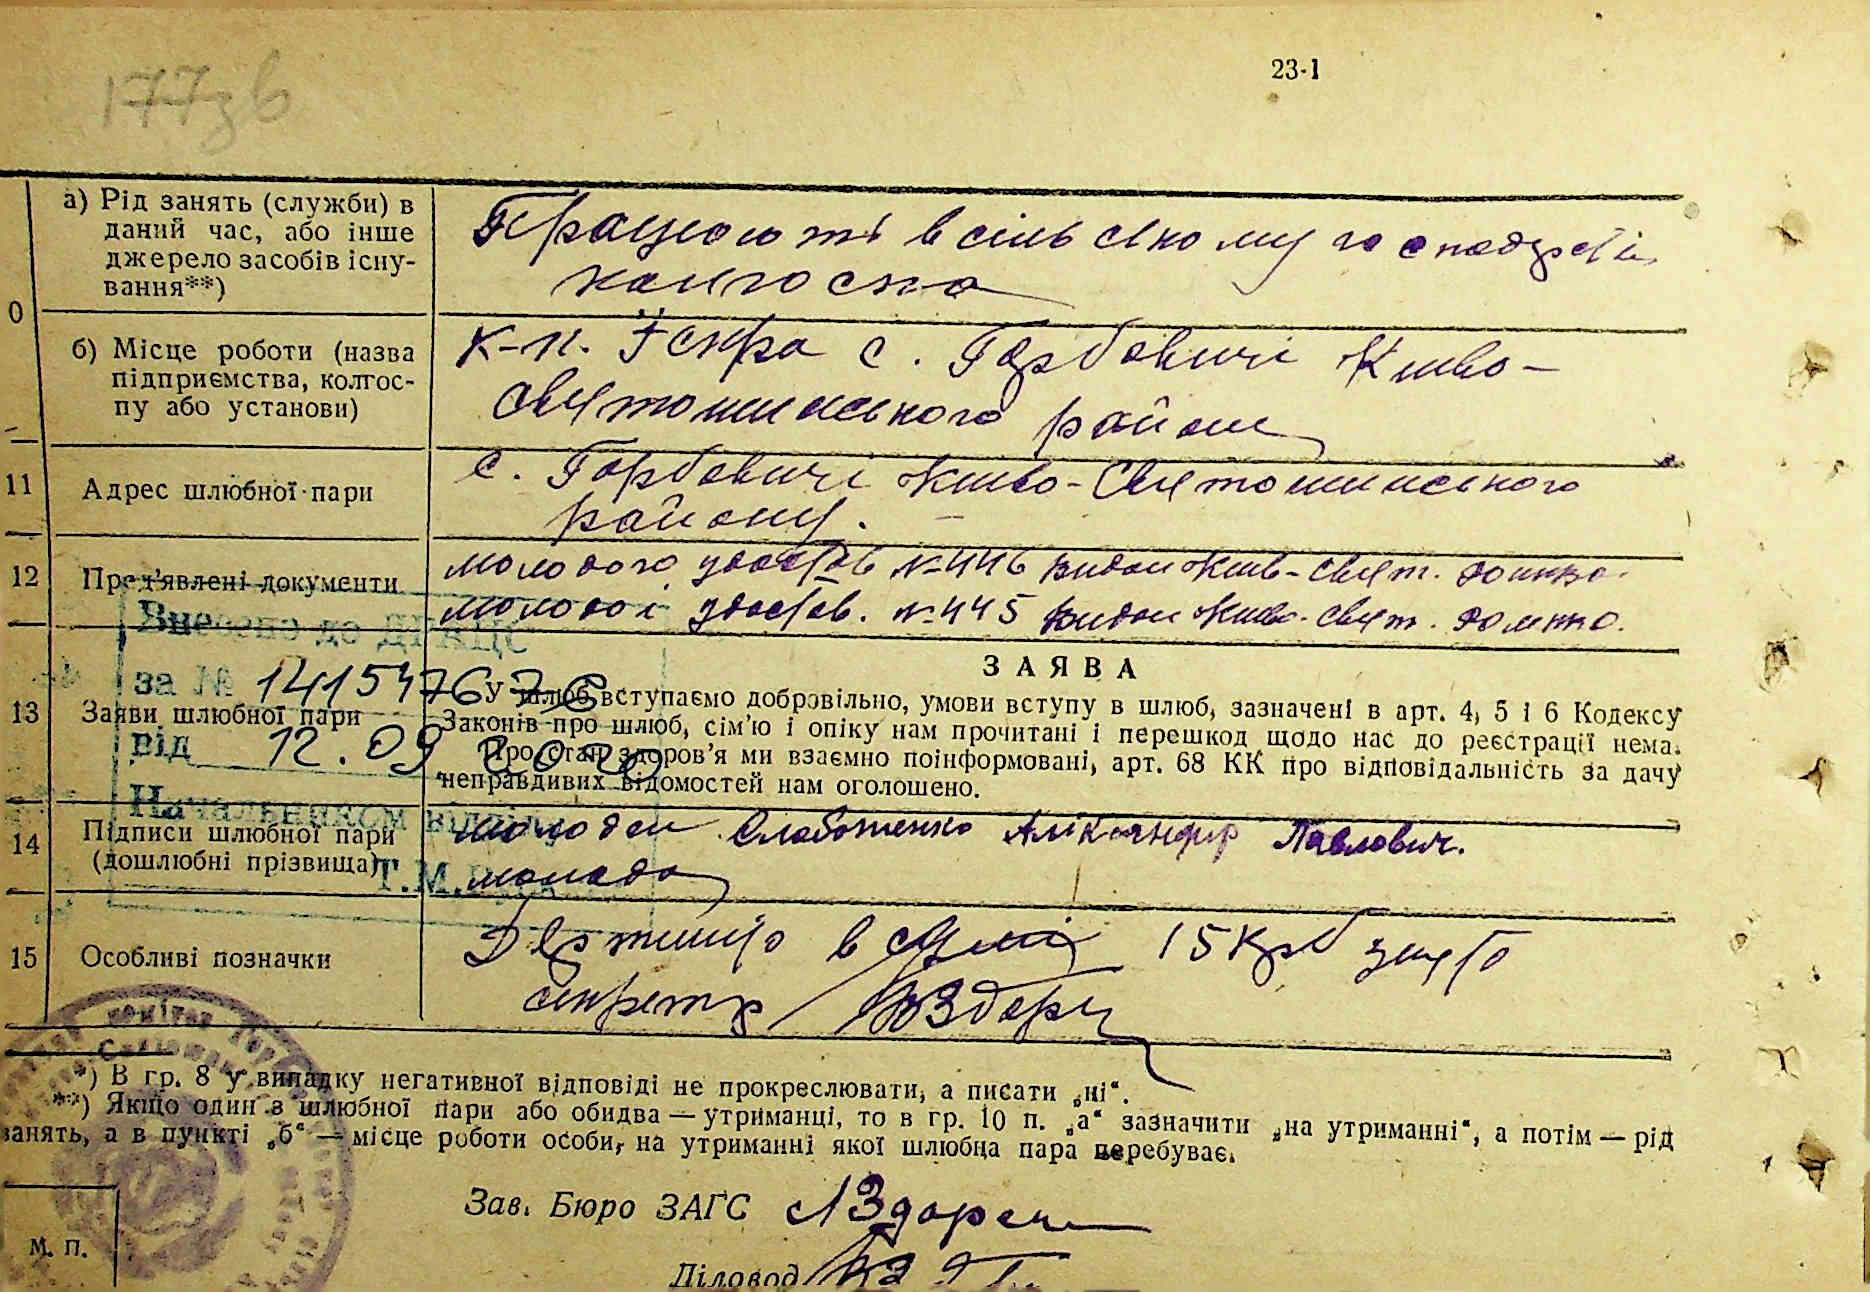 177зв
23-1
а) Рід занять (служби) в
даний час, або інше
джерело засобів існу-
вання**)
Працюють в сільському господрстві
колгоспа
0
б) Місце роботи (назва
підприємства, колгос-
пу або установи)
к-п. Іскра с. Горбовичі Києво-
Святошинського району
11
Адрес шлюбної пари
с. Горбовичі Києво-Святошинського
району.
12
Пред'явлені документи
молодого №446 видан Київ-Свят.
молодої №445 видан Києво-Свят.
13
Заяви шлюбної пари
ЗАЯВА
У шлюб вступаємо добровільно, умови вступу в шлюб, зазначені в арт. 4, 5 і 6 Кодексу
Законів про шлюб, сім'ю і опіку нам прочитані і перешкод щодо нас до реєстрації нема.
Про стан здоров'я ми взаємно поінформовані, арт. 68 КК про відповідальність за дачу
неправдивих відомостей нам оголошено.
Внесено до
за №
від 12.09
Начальником відділу
Т.М.
14
Підписи шлюбної пари
(дошлюбні прізвища)
молодой Слабоженко Павлович.
молода
15
Особливі позначки
в сумі 15 крб
секретр
*) В гр. 8 у випадку негативної відповіді не прокреслювати, а писати „ні“.
**) Якщо один з шлюбної пари або обидва — утриманці, то в гр. 10 п. „а“ зазначити „на утриманні“, а потім — рід
занять, а в пункті „б“ — місце роботи особи, на утриманні якої шлюбна пара перебуває.
Зав. Бюро ЗАГС
М. П.
Діловод